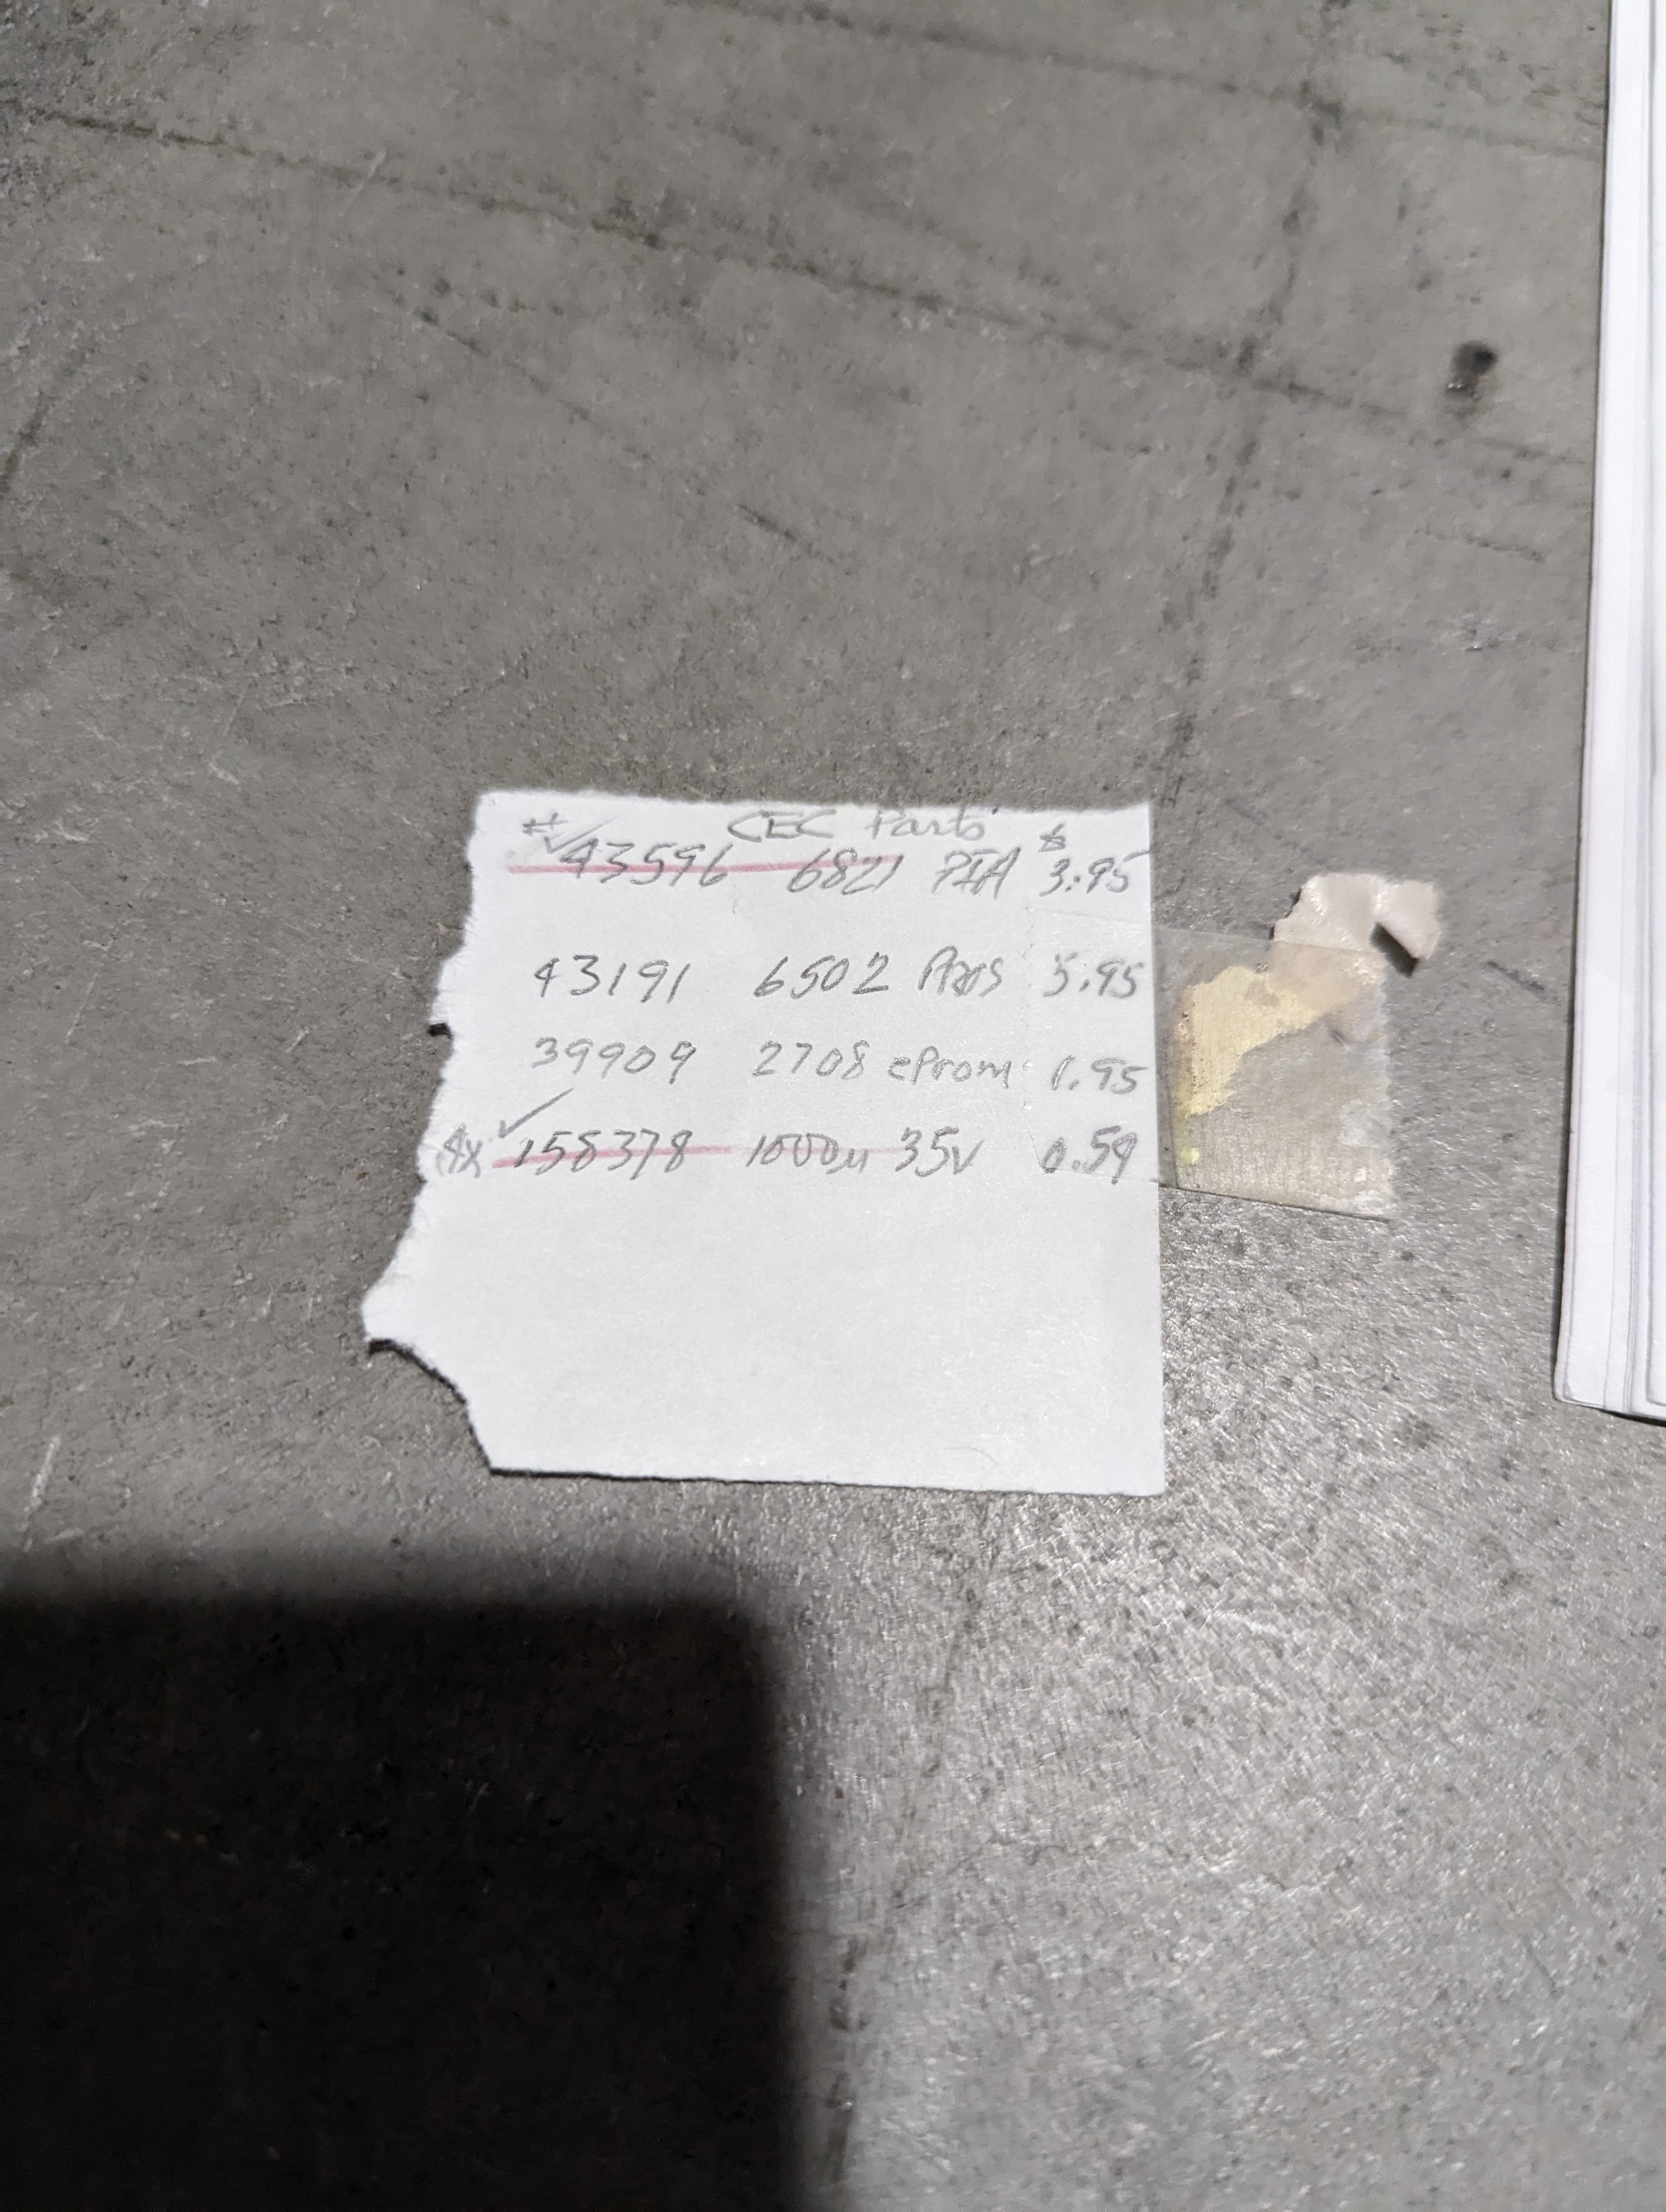 # CEC Parts $
✓ 43596 6821 PIA 3.95
43191 6502 5.95
39909 2708 eProm 1.95
4x ✓ 158378 1000µ 35V 0.59